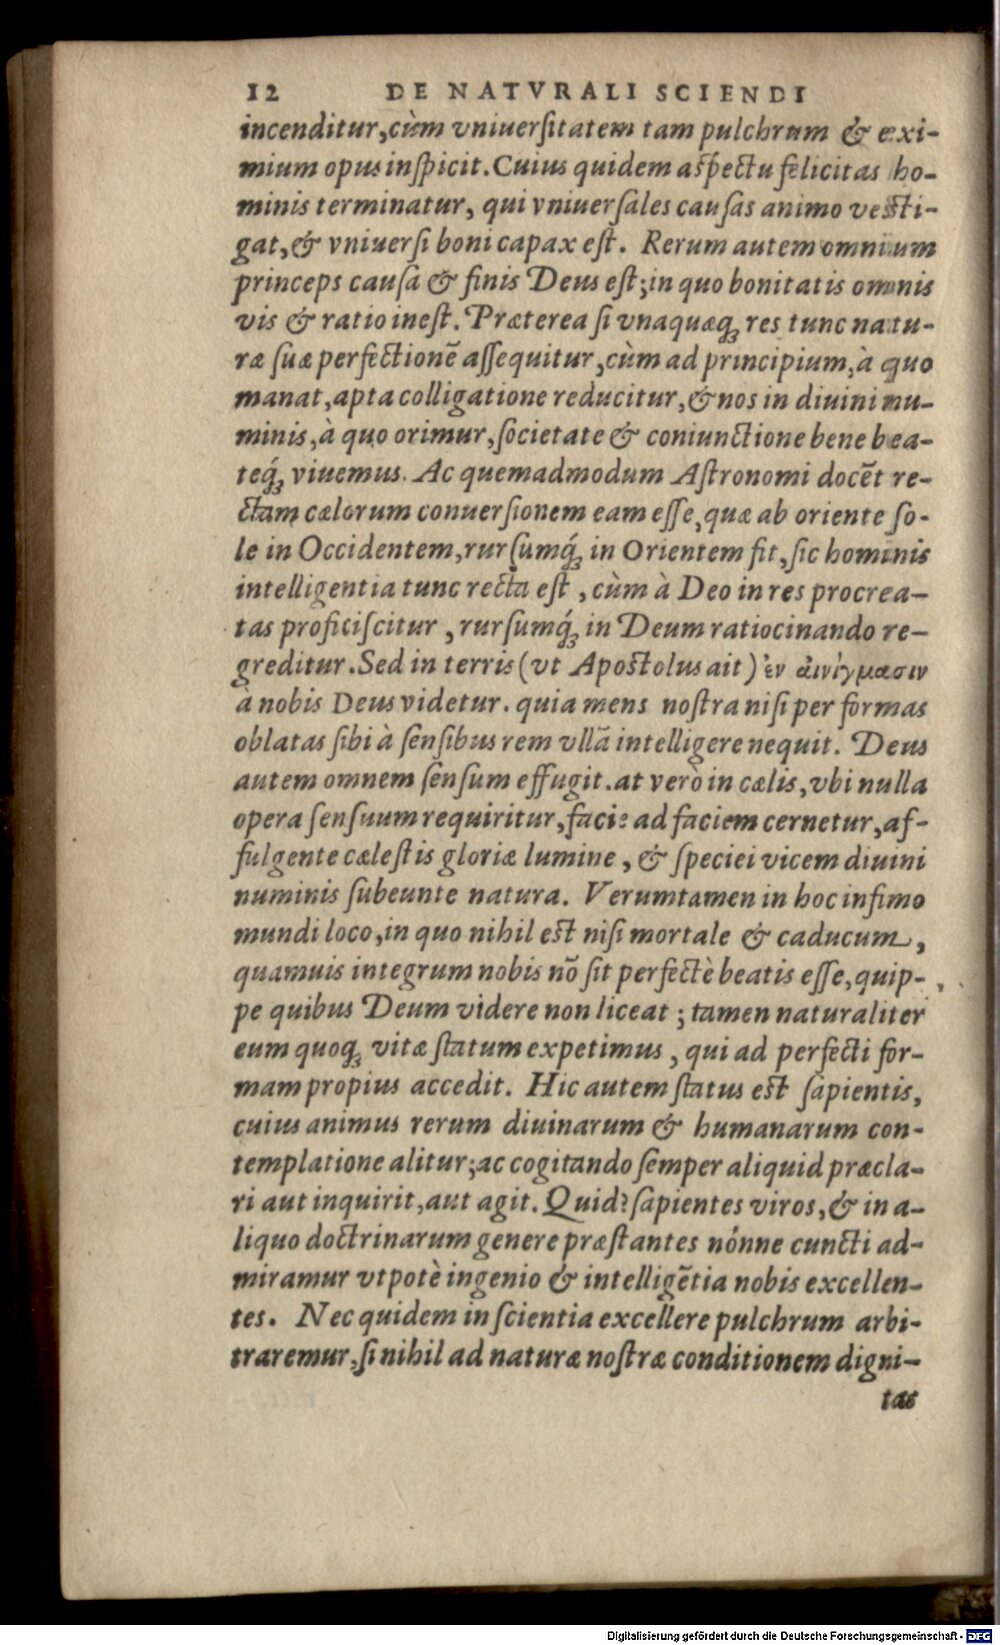 12 DE NATVRALI SCIENDI
incenditur,cùm vniuerſitatem tam pulchrum & exi-
mium opus inſpicit. Cuius quidem aſpectu felicitas ho-
minis terminatur, qui vniuerſales cauſas animo veſti-
gat,& vniuerſi boni capax eſt. Rerum autem omnium
princeps cauſa & finis Deus eſt;in quo bonitatis omnis
vis & ratio ineſt. Præterea ſi vnaquæqꝫ res tunc natu-
ræ ſuæ perfectionē aſſequitur,cùm ad principium,à quo
manat,apta colligatione reducitur,& nos in diuini nu-
minis,à quo orimur,ſocietate & coniunctione bene bea-
teq́ꝫ viuemus. Ac quemadmodum Aſtronomi docēt re-
ctam cælorum conuerſionem eam eſſe,quæ ab oriente ſo-
le in Occidentem,rurſumq́ꝫ in Orientem fit,ſic hominis
intelligentia tunc recta eſt ,cùm à Deo in res procrea-
tas proficiſcitur ,rurſumq́ꝫ in Deum ratiocinando re-
greditur.Sed in terris (vt Apoſtolus ait) ἐν αἰνίγμασιν
à nobis Deus videtur. quia mens noſtra niſi per formas
oblatas ſibi à ſenſibus rem vllā intelligere nequit. Deus
autem omnem ſenſum effugit.at verò in cælis,vbi nulla
opera ſenſuum requiritur,facie ad faciem cernetur,af-
fulgente cæleſtis gloriæ lumine ,& ſpeciei vicem diuini
numinis ſubeunte natura. Verumtamen in hoc infimo
mundi loco,in quo nihil eſt niſi mortale & caducum,
quamuis integrum nobis nō ſit perfectè beatis eſſe,quip-
pe quibus Deum videre non liceat ; tamen naturaliter
eum quoqꝫ vitæ ſtatum expetimus , qui ad perfecti for-
mam propius accedit. Hic autem ſtatus eſt ſapientis,
cuius animus rerum diuinarum & humanarum con-
templatione alitur;ac cogitando ſemper aliquid præcla-
ri aut inquirit,aut agit. Quid? ſapientes viros,& in a-
liquo doctrinarum genere præſtantes nónne cuncti ad-
miramur vtpotè ingenio & intelligētia nobis excellen-
tes. Nec quidem in ſcientia excellere pulchrum arbi-
traremur,ſi nihil ad naturæ noſtræ conditionem digni-
tas
Digitalisierung gefördert durch die Deutsche Forschungsgemeinschaft - DFG